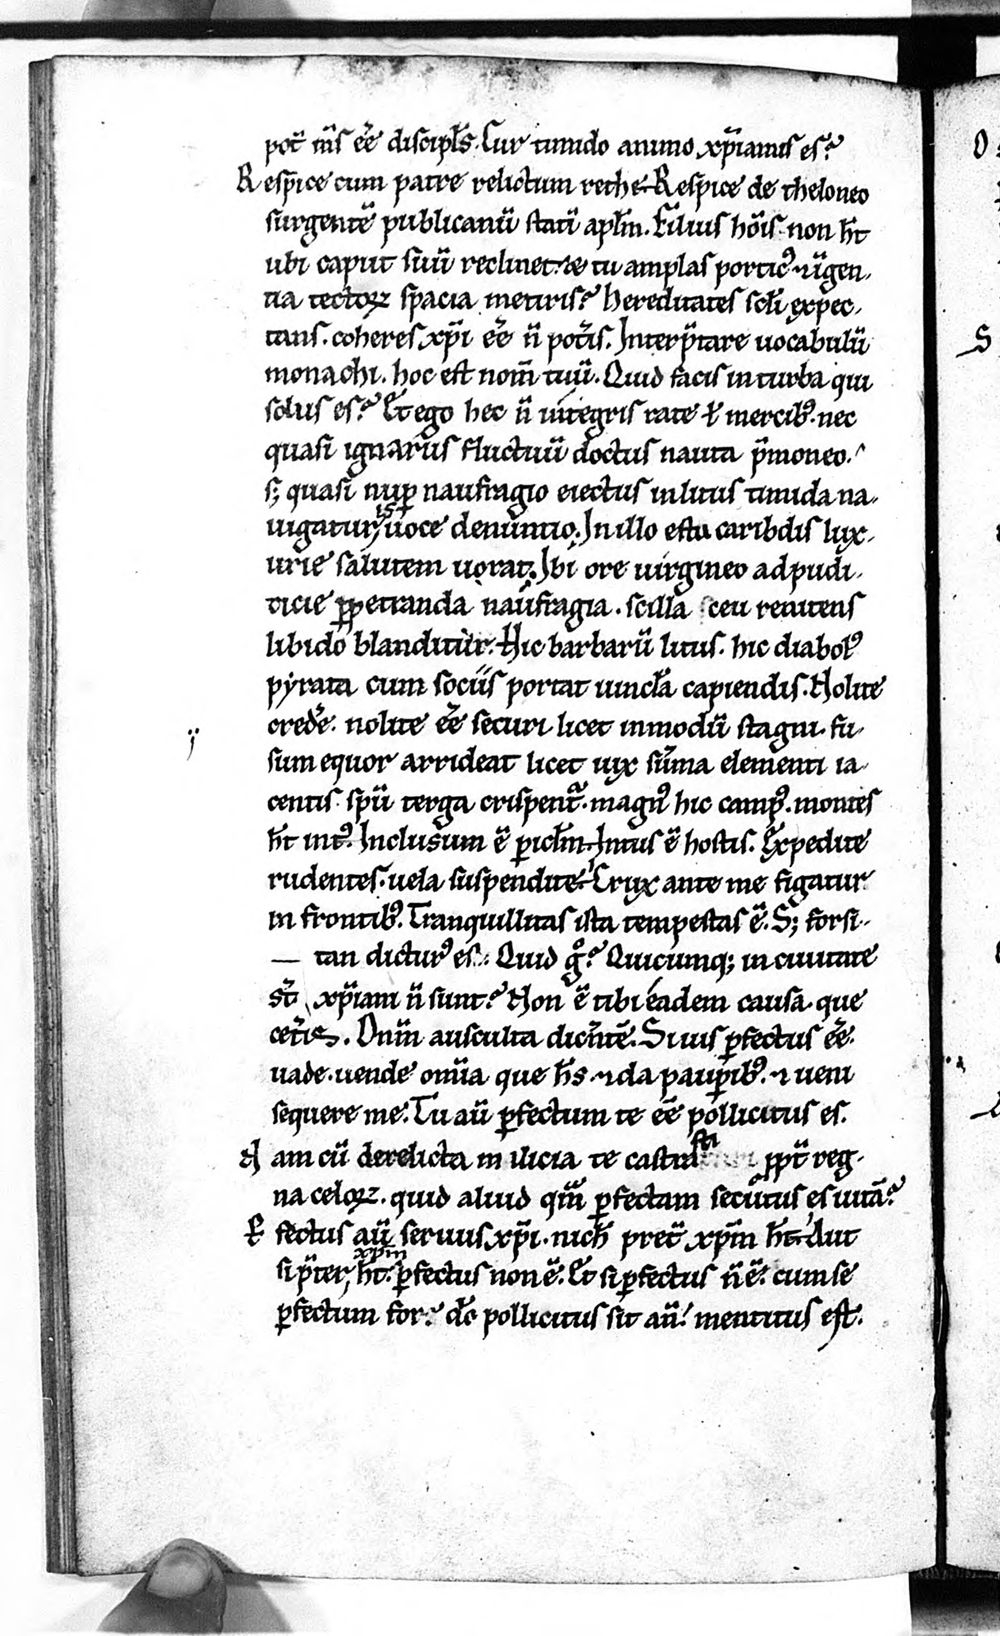 pot̄ m̄s eē discipl̄s. Cur timido animo xp̄ianus es?
Respice cum patre relictum rethe. Respice de theloneo
surgentē publicanū statī apl̄m. Filius hōis non h̄t
ubi caput suū reclinet. ⁊ tu amplas porticꝰ ⁊ īgen-
tia tectoꝝ spacia metiris? hereditatē scl̄i expec-
tans. coheres xp̄i eē n̄ pot̄is. Interp̄tare uocabulū
monachi. hoc est nom̄ tuū. Quid facis in turba qui
solus es? Et ego hec n̄ integris rate ⁊ mercibꝰ. nec
quasi ignarus fluctuū doctus nauta p̄moneo.
sꝫ quasi nuꝑ naufragio eiectus in litus timida na-
uigaturis uoce denuntio. In illo estu caribdis lux-
urie salutem uorat. Ibi ore uirgineo ad pudi-
ticie ꝑpetranda naufragia. scilla ceu renitens
libido blanditur. Hic barbarū litus. hic diabolꝰ
pyrata cum sociis portat uincl̄a capiendis. Nolite
credēe. nolite eē securi licet in modū stagni. fu-
sum equor arrideat licet uix sūma elementi ia-
centis spū terga crispent᷑. magnꝰ hic campꝰ. montes
h̄t intꝰ. Inclusum ē ꝑicl̄m. Intus ē hostis. Expedite
rudentes. uela suspendite. Crux ante me figatur
in frontibꝰ. Tranquillitas ista tempestas ē. Sꝫ forsi-
tan dicturꝰ es. Quid gͦ? Quicumqꝫ in ciuitate
st̄ xp̄iani n̄ sunt? Non ē tibi eadem causa. que
cet̄is. Dn̄m ausculta dic̄ntē. Si uis ꝑfectus eē.
uade. uende omīa que h̄s. ⁊ da pauꝑibꝰ. ⁊ ueni
sequere me. Tu aū ꝑfectum te eē pollicitus es.
Nam cū derelicta milicia te castrasti ꝓpt̄ reg-
na celoꝝ. quid aliud qͣm ꝑfectam secutus es uitā?
Ꝑfectus aū seruus xp̄i. nich̄ pret̄ xp̄m h̄t. Aut
si p̄ter xpm h̄t. ꝑfectus non ē. Et si ꝑfectus n̄ ē. cum se
ꝑfectum fore dō pollicitus sit an̄. mentitus est.